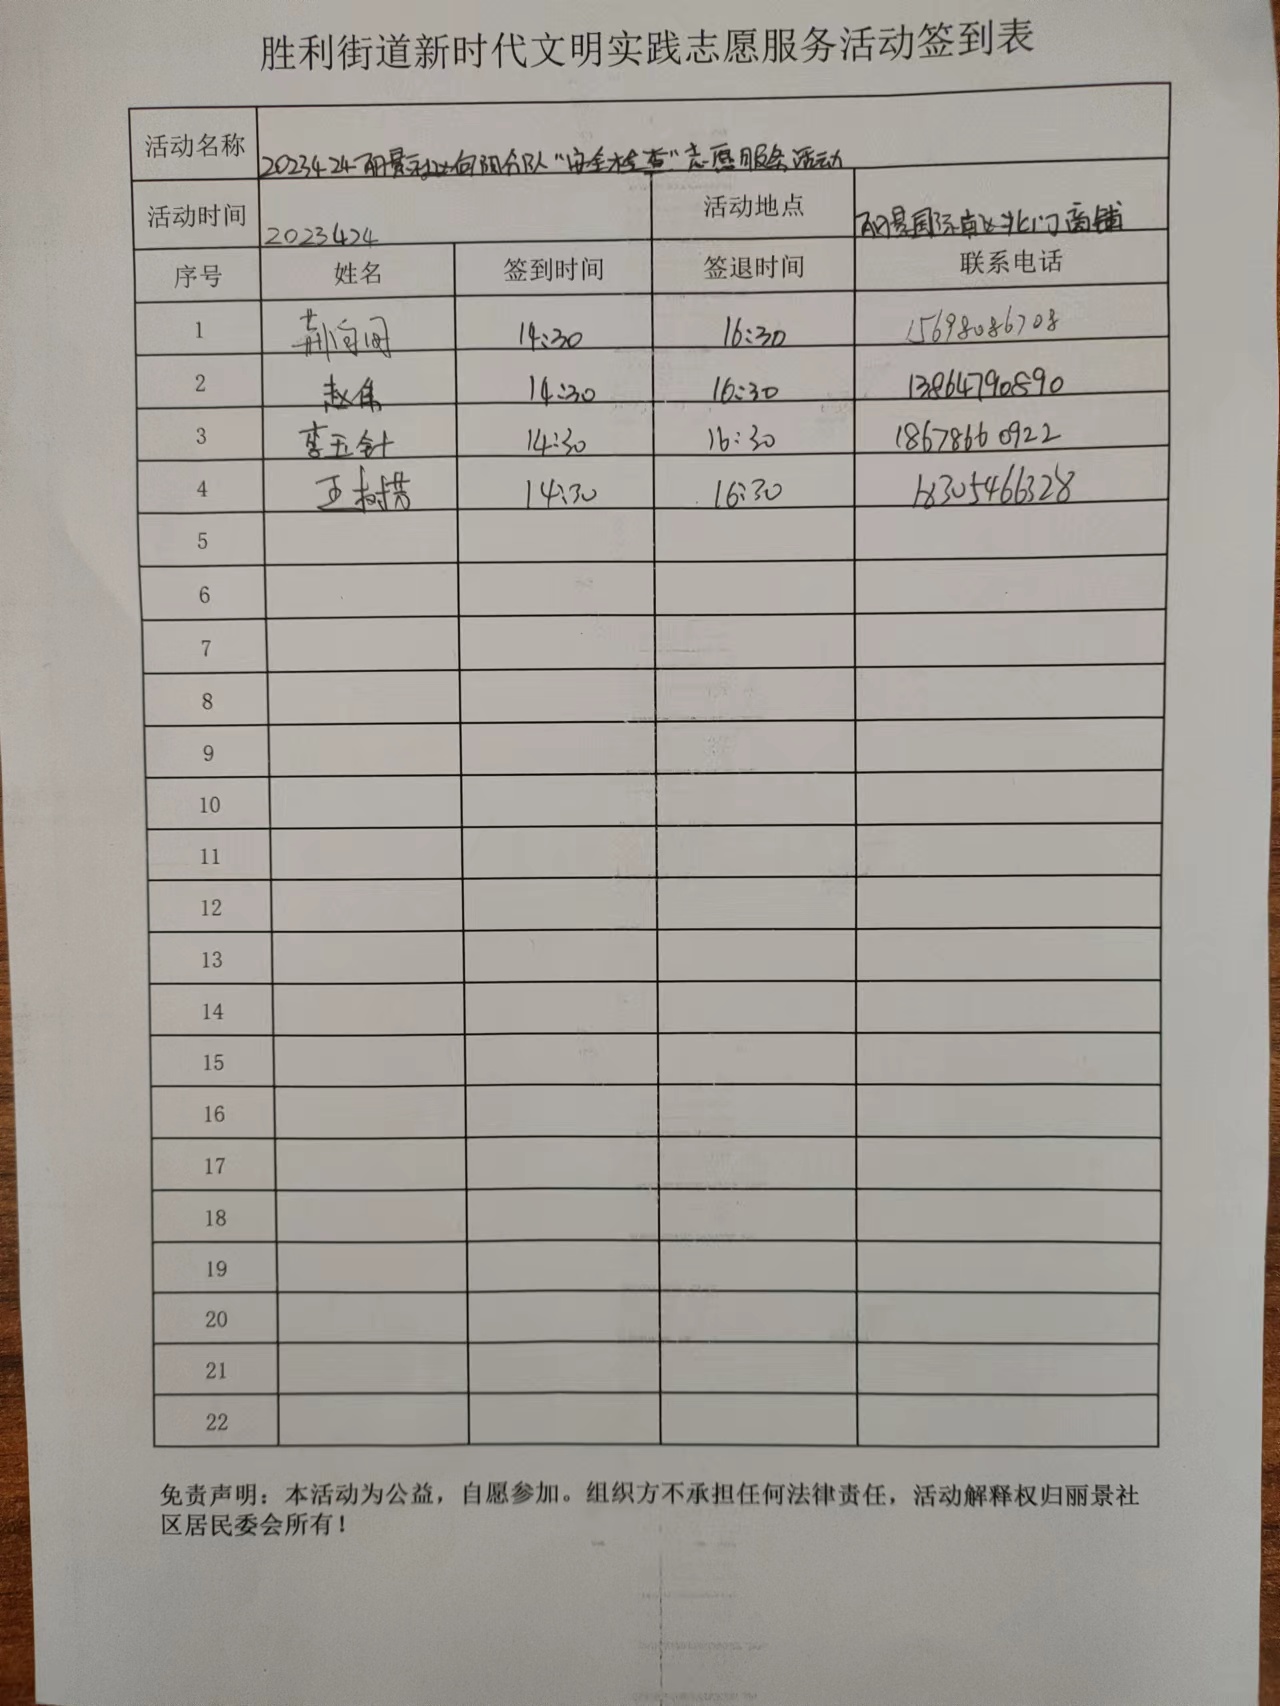 胜利街道新时代文明实践志愿服务活动签到表
活动名称 2023424丽景社区向阳分队“安全检查”志愿服务活动
活动时间 2023424 活动地点 丽景国际南区北门商铺
序号 姓名 签到时间 签退时间 联系电话
1 14:30 16:30 15698086708
2 赵伟 14:30 16:30 13864790890
3 李玉针 14:30 16:30 18678660922
4 王树芳 14:30 16:30 18305466328
5
6
7
8
9
10
11
12
13
14
15
16
17
18
19
20
21
22
免责声明：本活动为公益，自愿参加。组织方不承担任何法律责任，活动解释权归丽景社
区居民委会所有！